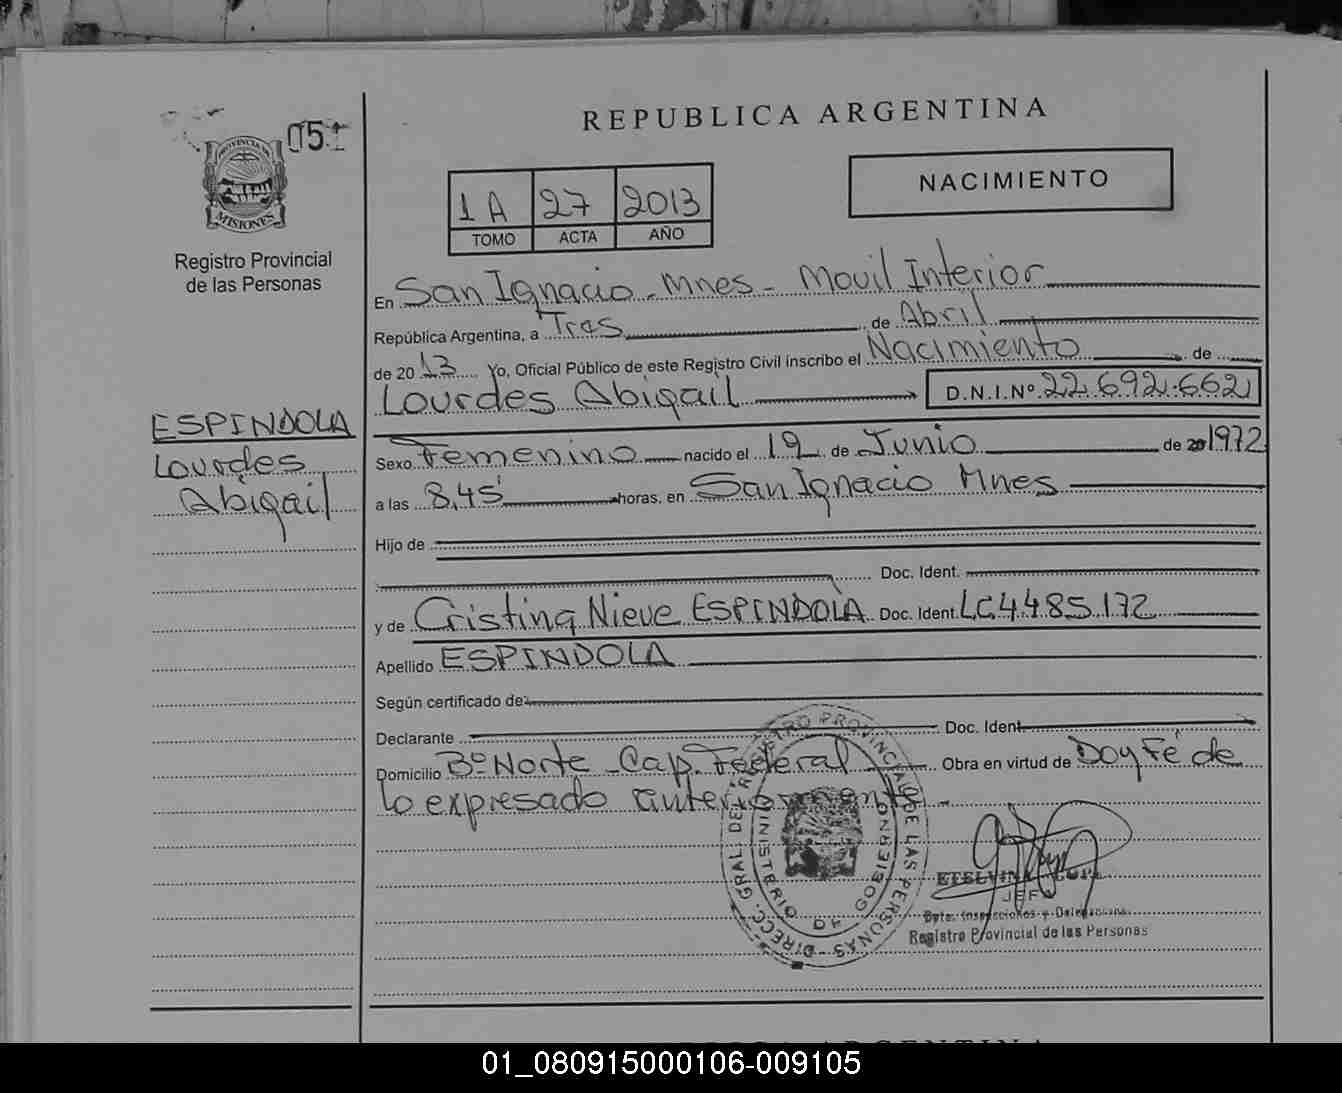 REPUBLICA ARGENTINA
051
PROVINCIA DE
MISIONES
Registro Provincial
de las Personas
1A 27 2013
TOMO ACTA AÑO
NACIMIENTO
En San Ignacio - Mnes - Movil Interior
República Argentina, a Tres de Abril
de 2013 Yo, Oficial Público de este Registro Civil inscribo el Nacimiento de
Lourdes Abigail D.N.I.Nº 22.692.662
ESPINDOLA
Lourdes
Abigail
Sexo Femenino nacido el 19 de Junio de 20 1972
a las 8,45' horas, en San Ignacio Mnes
Hijo de
Doc. Ident.
y de Cristina Nieve ESPINDOLA Doc. Ident. LC4485.172
Apellido ESPINDOLA
Según certificado de
Declarante Doc. Ident.
Domicilio Bº Norte - Cap. Federal Obra en virtud de Doy Fé de
lo expresado anteriormente -
DIRECC. GRAL. DEL REGISTRO PROVINCIAL DE LAS PERSONAS
MINISTERIO DE GOBIERNO
ETELVINA
JEFE
Dpto. Inspecciones y Delegaciones
Registro Provincial de las Personas
ARGENTINA
01_080915000106-009105